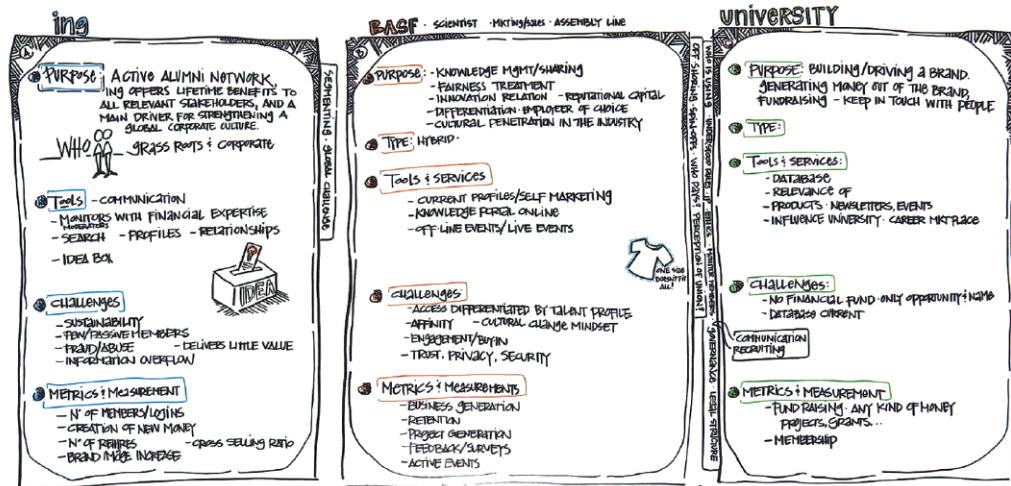 ing
A
PURPOSE: ACTIVE ALUMNI NETWORK,
ING OFFERS LIFETIME BENEFITS TO
ALL RELEVANT STAKEHOLDERS, AND A
MAIN DRIVER FOR STRENGTHENING A
GLOBAL CORPORATE CULTURE.
WHO
GRASS ROOTS & CORPORATE
TOOLS - COMMUNICATION
- MONITORS WITH FINANCIAL EXPERTISE
MODERATORS
- SEARCH - PROFILES - RELATIONSHIPS
- IDEA BOX
IDEA
CHALLENGES
- SUSTAINABILITY
- FEW/PASSIVE MEMBERS
- FRAUD/ABUSE - DELIVERS LITTLE VALUE
- INFORMATION OVERFLOW
METRICS & MEASUREMENT
- Nº OF MEMBERS/LOGINS
- CREATION OF NEW MONEY
- Nº OF REHIRES - CROSS SELLING RATIO
- BRAND IMAGE INCREASE
SEGMENTING GLOBAL CHALLENGE
BASF · SCIENTIST · MKTING/SALES · ASSEMBLY LINE
B
PURPOSE: - KNOWLEDGE MGMT/SHARING
- FAIRNESS TREATMENT
- INNOVATION RELATION - REPUTATIONAL CAPITAL
- DIFFERENTIATION: EMPLOYER OF CHOICE
- CULTURAL PENETRATION IN THE INDUSTRY
TYPE: HYBRID.
TOOLS & SERVICES
- CURRENT PROFILES/SELF MARKETING
- KNOWLEDGE PORTAL ONLINE
- OFF-LINE EVENTS/LIVE EVENTS
ONE SIZE
DOESN'T FIT
ALL!
CHALLENGES
- ACCESS DIFFERENTIATED BY TALENT PROFILE
- AFFINITY - CULTURAL CHANGE MINDSET
- ENGAGEMENT/BUY-IN
- TRUST, PRIVACY, SECURITY
METRICS & MEASUREMENTS
- BUSINESS GENERATION
- RETENTION
- PROJECT GENERATION
- FEEDBACK/SURVEYS
- ACTIVE EVENTS
OFF SHORING · SPIN-OFFS · WHO PAYS? PERCEPTION OF UNION?
WHO IS USING · UNDERSTOOD RULES · IP · ETHICS · MONITOR MEMBERS · GOVERNANCE · LEGAL STRUCTURE
UNIVERSITY
C
PURPOSE: BUILDING/DRIVING A BRAND.
GENERATING MONEY OUT OF THE BRAND,
FUNDRAISING - KEEP IN TOUCH WITH PEOPLE
TYPE:
TOOLS & SERVICES:
- DATABASE
- RELEVANCE OF
- PRODUCTS · NEWSLETTERS, EVENTS
- INFLUENCE UNIVERSITY · CAREER MKTPLACE
CHALLENGES:
- NO FINANCIAL FUND · ONLY OPPORTUNITY & NAME
- DATABASE CURRENT
COMMUNICATION
RECRUITING
METRICS & MEASUREMENT
- FUND RAISING · ANY KIND OF MONEY
PROJECTS, GRANTS...
- MEMBERSHIP